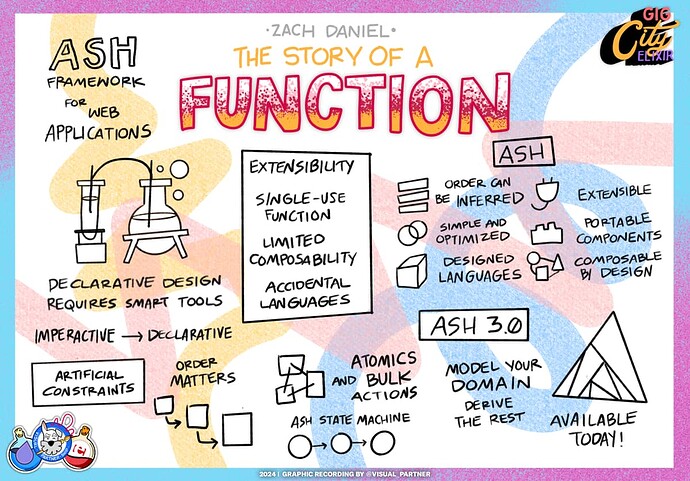 • ZACH DANIEL •
THE STORY OF A
FUNCTION
GIG
City
ELIXIR
ASH
FRAMEWORK
FOR WEB
APPLICATIONS
DECLARATIVE DESIGN
REQUIRES SMART TOOLS
IMPERACTIVE → DECLARATIVE
ARTIFICIAL
CONSTRAINTS
ORDER
MATTERS
EXTENSIBILITY
SINGLE-USE
FUNCTION
LIMITED
COMPOSABILITY
ACCIDENTAL
LANGUAGES
ATOMICS
AND BULK
ACTIONS
ASH STATE MACHINE
ASH
ORDER CAN
BE INFERRED
EXTENSIBLE
SIMPLE AND
OPTIMIZED
PORTABLE
COMPONENTS
DESIGNED
LANGUAGES
COMPOSABLE
BY DESIGN
ASH 3.0
MODEL YOUR
DOMAIN
DERIVE
THE REST
AVAILABLE
TODAY!
2024 | GRAPHIC RECORDING BY @VISUAL_PARTNER